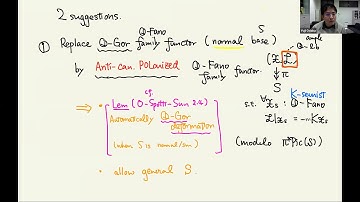 2 suggestions.
Q-Fano
① Replace Q-Gor family functor (normal base)
by Anti-can. Polarized Q-Fano family functor.
S
ample
Q-l.b
(𝒳, ℒ)
↓π
S
K-semist
s.t. ∀𝒳s : Q-Fano
ℒ|𝒳s = -m K𝒳s
(modulo π*Pic(S))
cf.
⇒ • [Lem (O-Spotti-Sun 2.4)
Automatically Q-Gor
deformation
(when S is normal/sm)]
• allow general S.